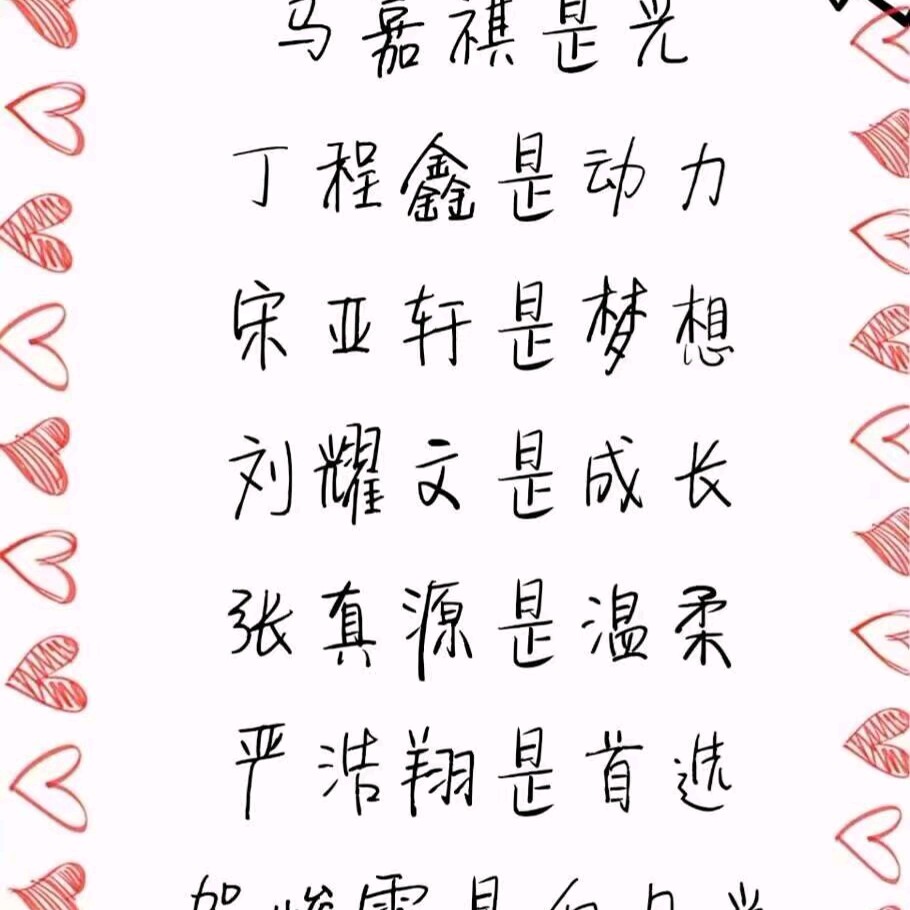 马嘉祺是光
丁程鑫是动力
宋亚轩是梦想
刘耀文是成长
张真源是温柔
严浩翔是首选
贺峻霖是白月光